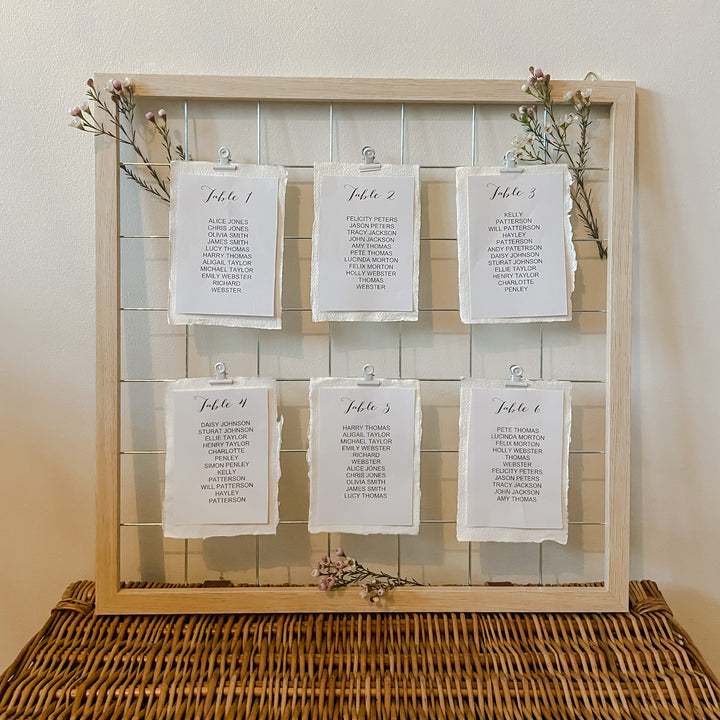 Table 1
ALICE JONES
CHRIS JONES
OLIVIA SMITH
JAMES SMITH
LUCY THOMAS
HARRY THOMAS
ALIGAIL TAYLOR
MICHAEL TAYLOR
EMILY WEBSTER
RICHARD
WEBSTER
Table 2
FELICITY PETERS
JASON PETERS
TRACY JACKSON
JOHN JACKSON
AMY THOMAS
PETE THOMAS
LUCINDA MORTON
FELIX MORTON
HOLLY WEBSTER
THOMAS
WEBSTER
Table 3
KELLY
PATTERSON
WILL PATTERSON
HAYLEY
PATTERSON
ANDY PATETRSON
DAISY JOHNSON
STURAT JOHNSON
ELLIE TAYLOR
HENRY TAYLOR
CHARLOTTE
PENLEY
Table 4
DAISY JOHNSON
STURAT JOHNSON
ELLIE TAYLOR
HENRY TAYLOR
CHARLOTTE
PENLEY
SIMON PENLEY
KELLY
PATTERSON
WILL PATTERSON
HAYLEY
PATTERSON
Table 5
HARRY THOMAS
ALIGAIL TAYLOR
MICHAEL TAYLOR
EMILY WEBSTER
RICHARD
WEBSTER
ALICE JONES
CHRIS JONES
OLIVIA SMITH
JAMES SMITH
LUCY THOMAS
Table 6
PETE THOMAS
LUCINDA MORTON
FELIX MORTON
HOLLY WEBSTER
THOMAS
WEBSTER
FELICITY PETERS
JASON PETERS
TRACY JACKSON
JOHN JACKSON
AMY THOMAS